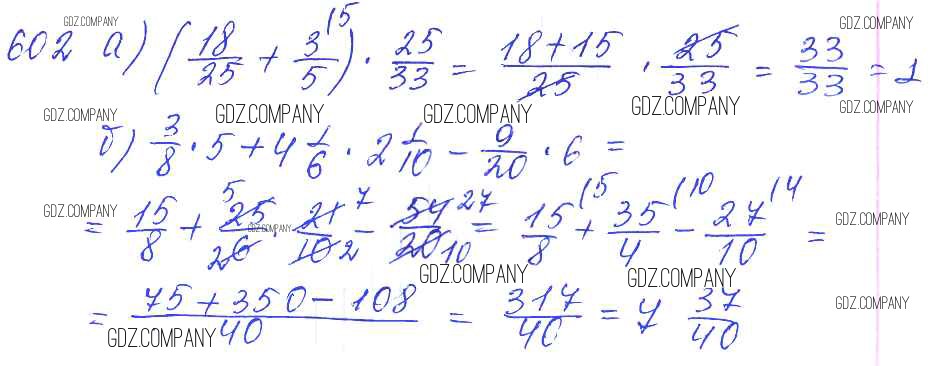 GDZ.COMPANY GDZ.COMPANY
602 а) (18/25 + 3/5 (5) · 25/33 = (18+15)/25 · 25/33 = 33/33 = 1
GDZ.COMPANY GDZ.COMPANY GDZ.COMPANY GDZ.COMPANY GDZ.COMPANY
б) 3/8 · 5 + 4 1/6 · 2 1/10 - 9/20 · 6 =
GDZ.COMPANY GDZ.COMPANY GDZ.COMPANY
= 15/8 + 25 5/6 2 · 21 7/10 2 - 54 27/20 10 = 15/8 (5 + 35/4 (10 - 27/10 (4 =
GDZ.COMPANY GDZ.COMPANY
= (75+350-108)/40 = 317/40 = 7 37/40
GDZ.COMPANY GDZ.COMPANY